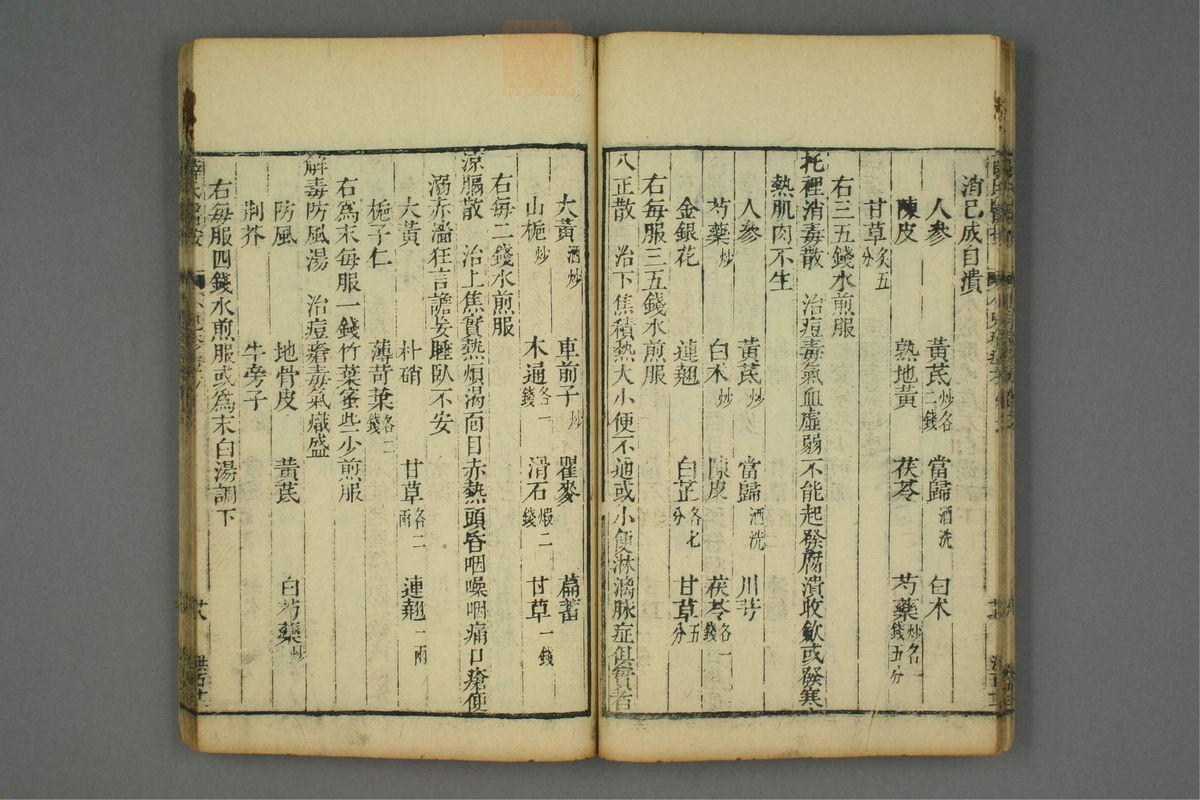 消已成自潰
人參 黃芪炒各二錢 當歸酒洗 白术
陳皮 熟地黃 茯苓 芍藥炒各一錢五分
甘草炙五分
右三五錢水煎服
托裡消毒散 治痘毒氣血虛弱不能起發腐潰收斂或發寒
熱肌肉不生
人參 黃芪炒 當歸酒洗 川芎
芍藥炒 白术炒 陳皮 茯苓各一錢
金銀花 連翹 白芷各七分 甘草五分
右每服三五錢水煎服
八正散 治下焦積熱大小便不通或小便淋澫脉症俱實者
大黃酒炒 車前子炒 瞿麥 萹蓄
山梔炒 木通各一錢 滑石煆二錢 甘草一錢
右每二錢水煎服
涼膈散 治上焦實熱煩渴面目赤熱頭昏咽喉咽痛口瘡便
溺赤澁狂言譫妄睡臥不安
大黃 朴硝 甘草各二兩 連翹一兩
梔子仁 薄苛葉各二錢
右爲末每服一錢竹葉蜜些少煎服
解毒防風湯 治痘瘡毒氣熾盛
防風 地骨皮 黃芪 白芍藥炒
荆芥 牛蒡子
右每服四錢水煎服或爲末白湯調下
薛氏醫按